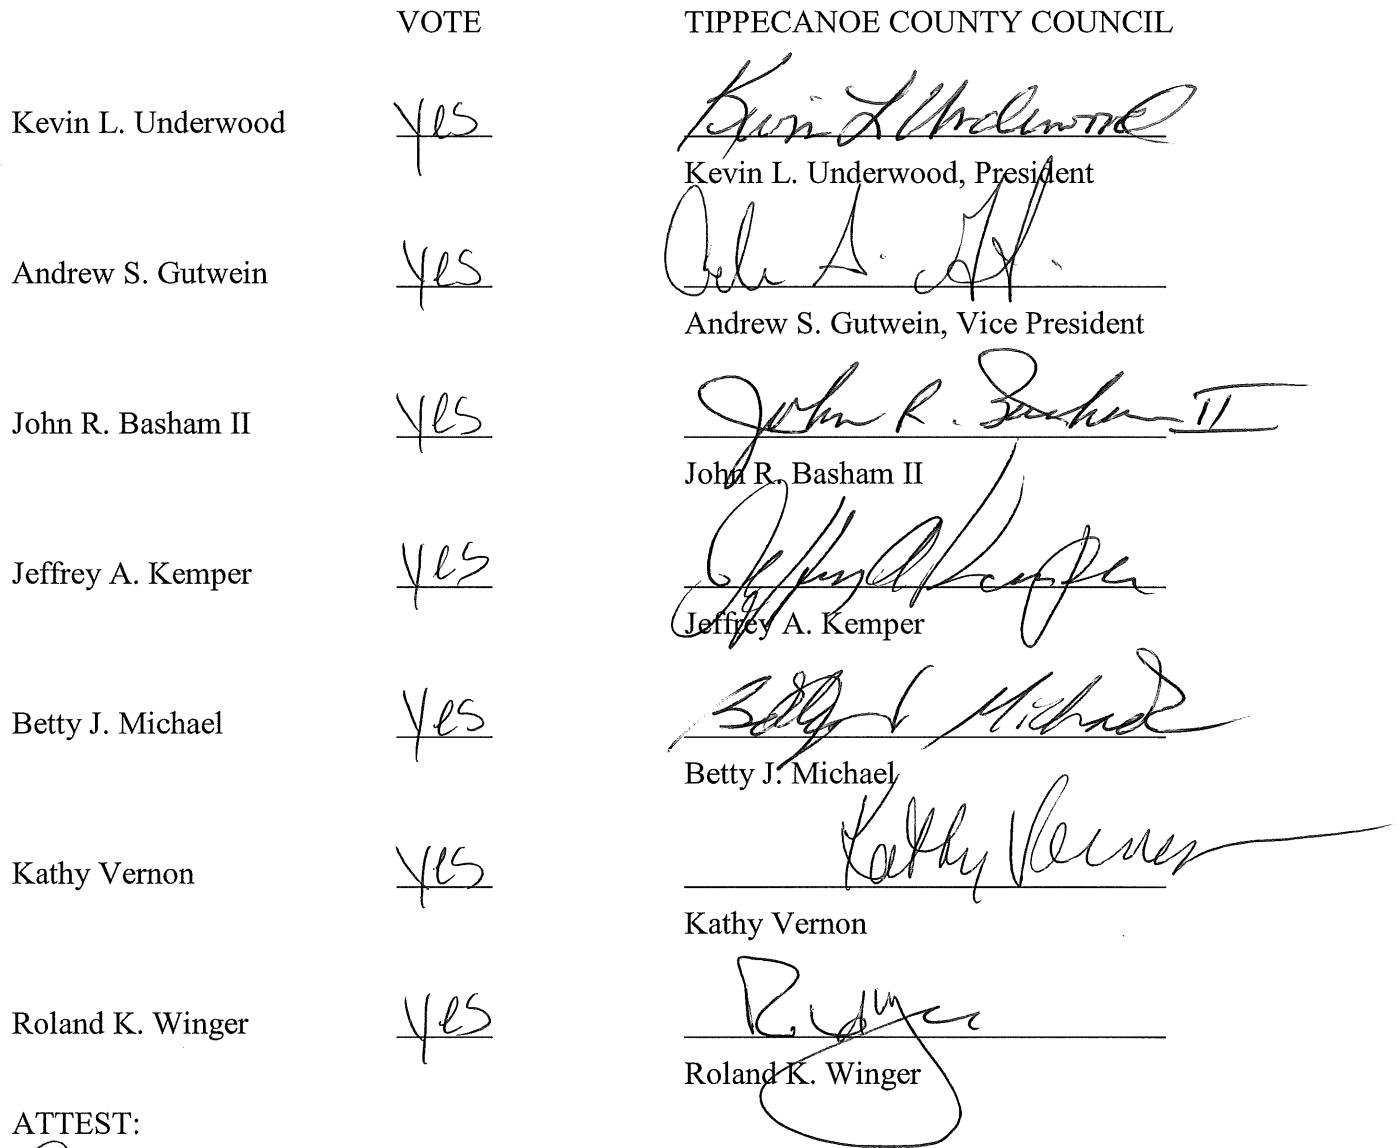 VOTE TIPPECANOE COUNTY COUNCIL
Kevin L. Underwood yes Kevin L Underwood
Kevin L. Underwood, President
Andrew S. Gutwein yes
Andrew S. Gutwein, Vice President
John R. Basham II yes John R. Basham II
John R. Basham II
Jeffrey A. Kemper yes Jeffrey A Kemper
Jeffrey A. Kemper
Betty J. Michael yes Betty J Michael
Betty J. Michael
Kathy Vernon yes Kathy Vernon
Kathy Vernon
Roland K. Winger yes
Roland K. Winger
ATTEST: